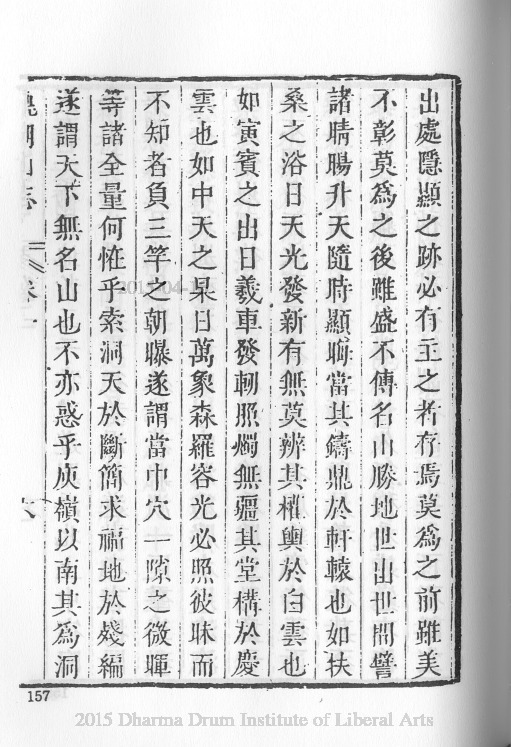 出處隱顯之跡必有主之者存焉莫為之前雖美
不彰莫為之後雖盛不傳名山勝地世出世間譬
諸晴暘升天隨時顯晦當其鑄鼎於軒轅也如扶
桑之浴日天光發新有無莫辨其權輿於白雲也
如寅賓之出日羲車發軔照燭無疆其堂構於慶
雲也如中天之杲日萬象森羅容光必照彼昧而
不知者負三竿之朝曝遂謂當中穴一隙之微暉
等諸全量何恠乎索洞天於斷簡求福地於殘編
遂謂天下無名山也不亦惑乎庾嶺以南其為洞
山志 卷一 六
157
2015 Dharma Drum Institute of Liberal Arts